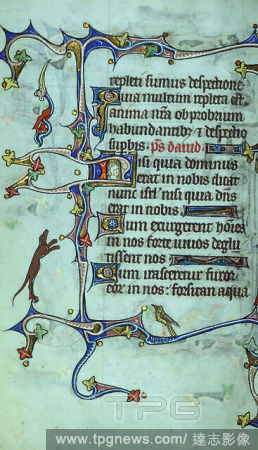 repleti sumus despectione
Quia multum repleta est
anima nr̄a obprobrium
habundantibȝ ⁊ despectio
supbis. ps̄ dauid
Nisi quia dominus
erat in nobis dicat
nunc isrl̄ nisi quia dn̄s
erat in nobis
Cum exurgerent hōīes
in nos forte uiuos deglu
tissent nos
Cum irasceretur furor
eor in nos: forsitan aqua
TPG
www.tpgnews.com/ 達志影像